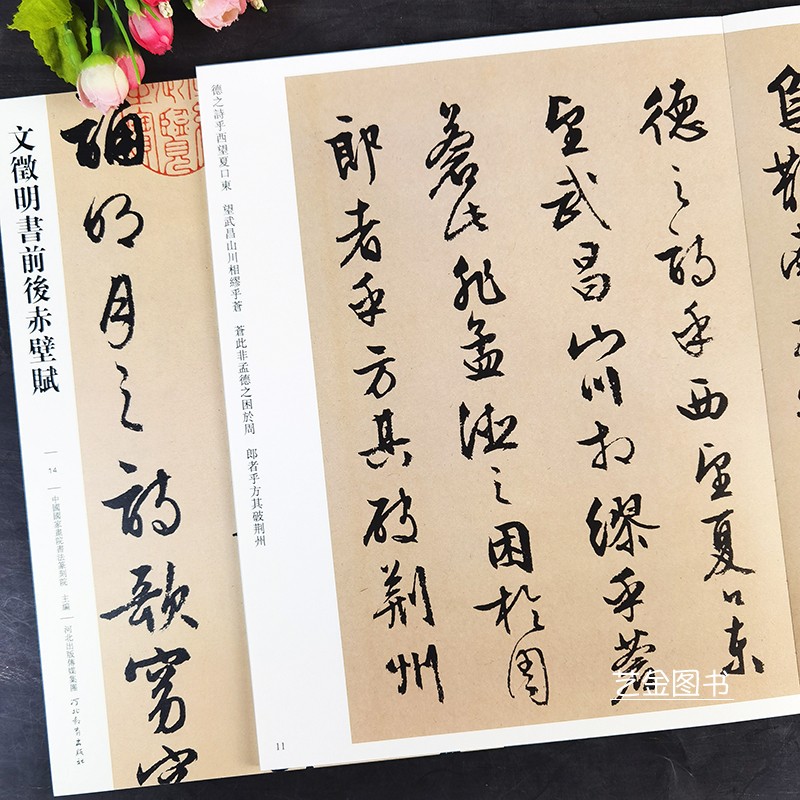 德之詩乎西望夏口東
望武昌山川相繆乎蒼
蒼此非孟德之困於周
郎者乎方其破荊州
德之詩乎西望夏口東　望武昌山川相繆乎蒼　蒼此非孟德之困於周　郎者乎方其破荊州
11
誦明月之詩歌窈
文徵明書前後赤壁賦
14
中國國家畫院書法篆刻院　主編
河北出版傳媒集團
河北教育出版社
艺金图书